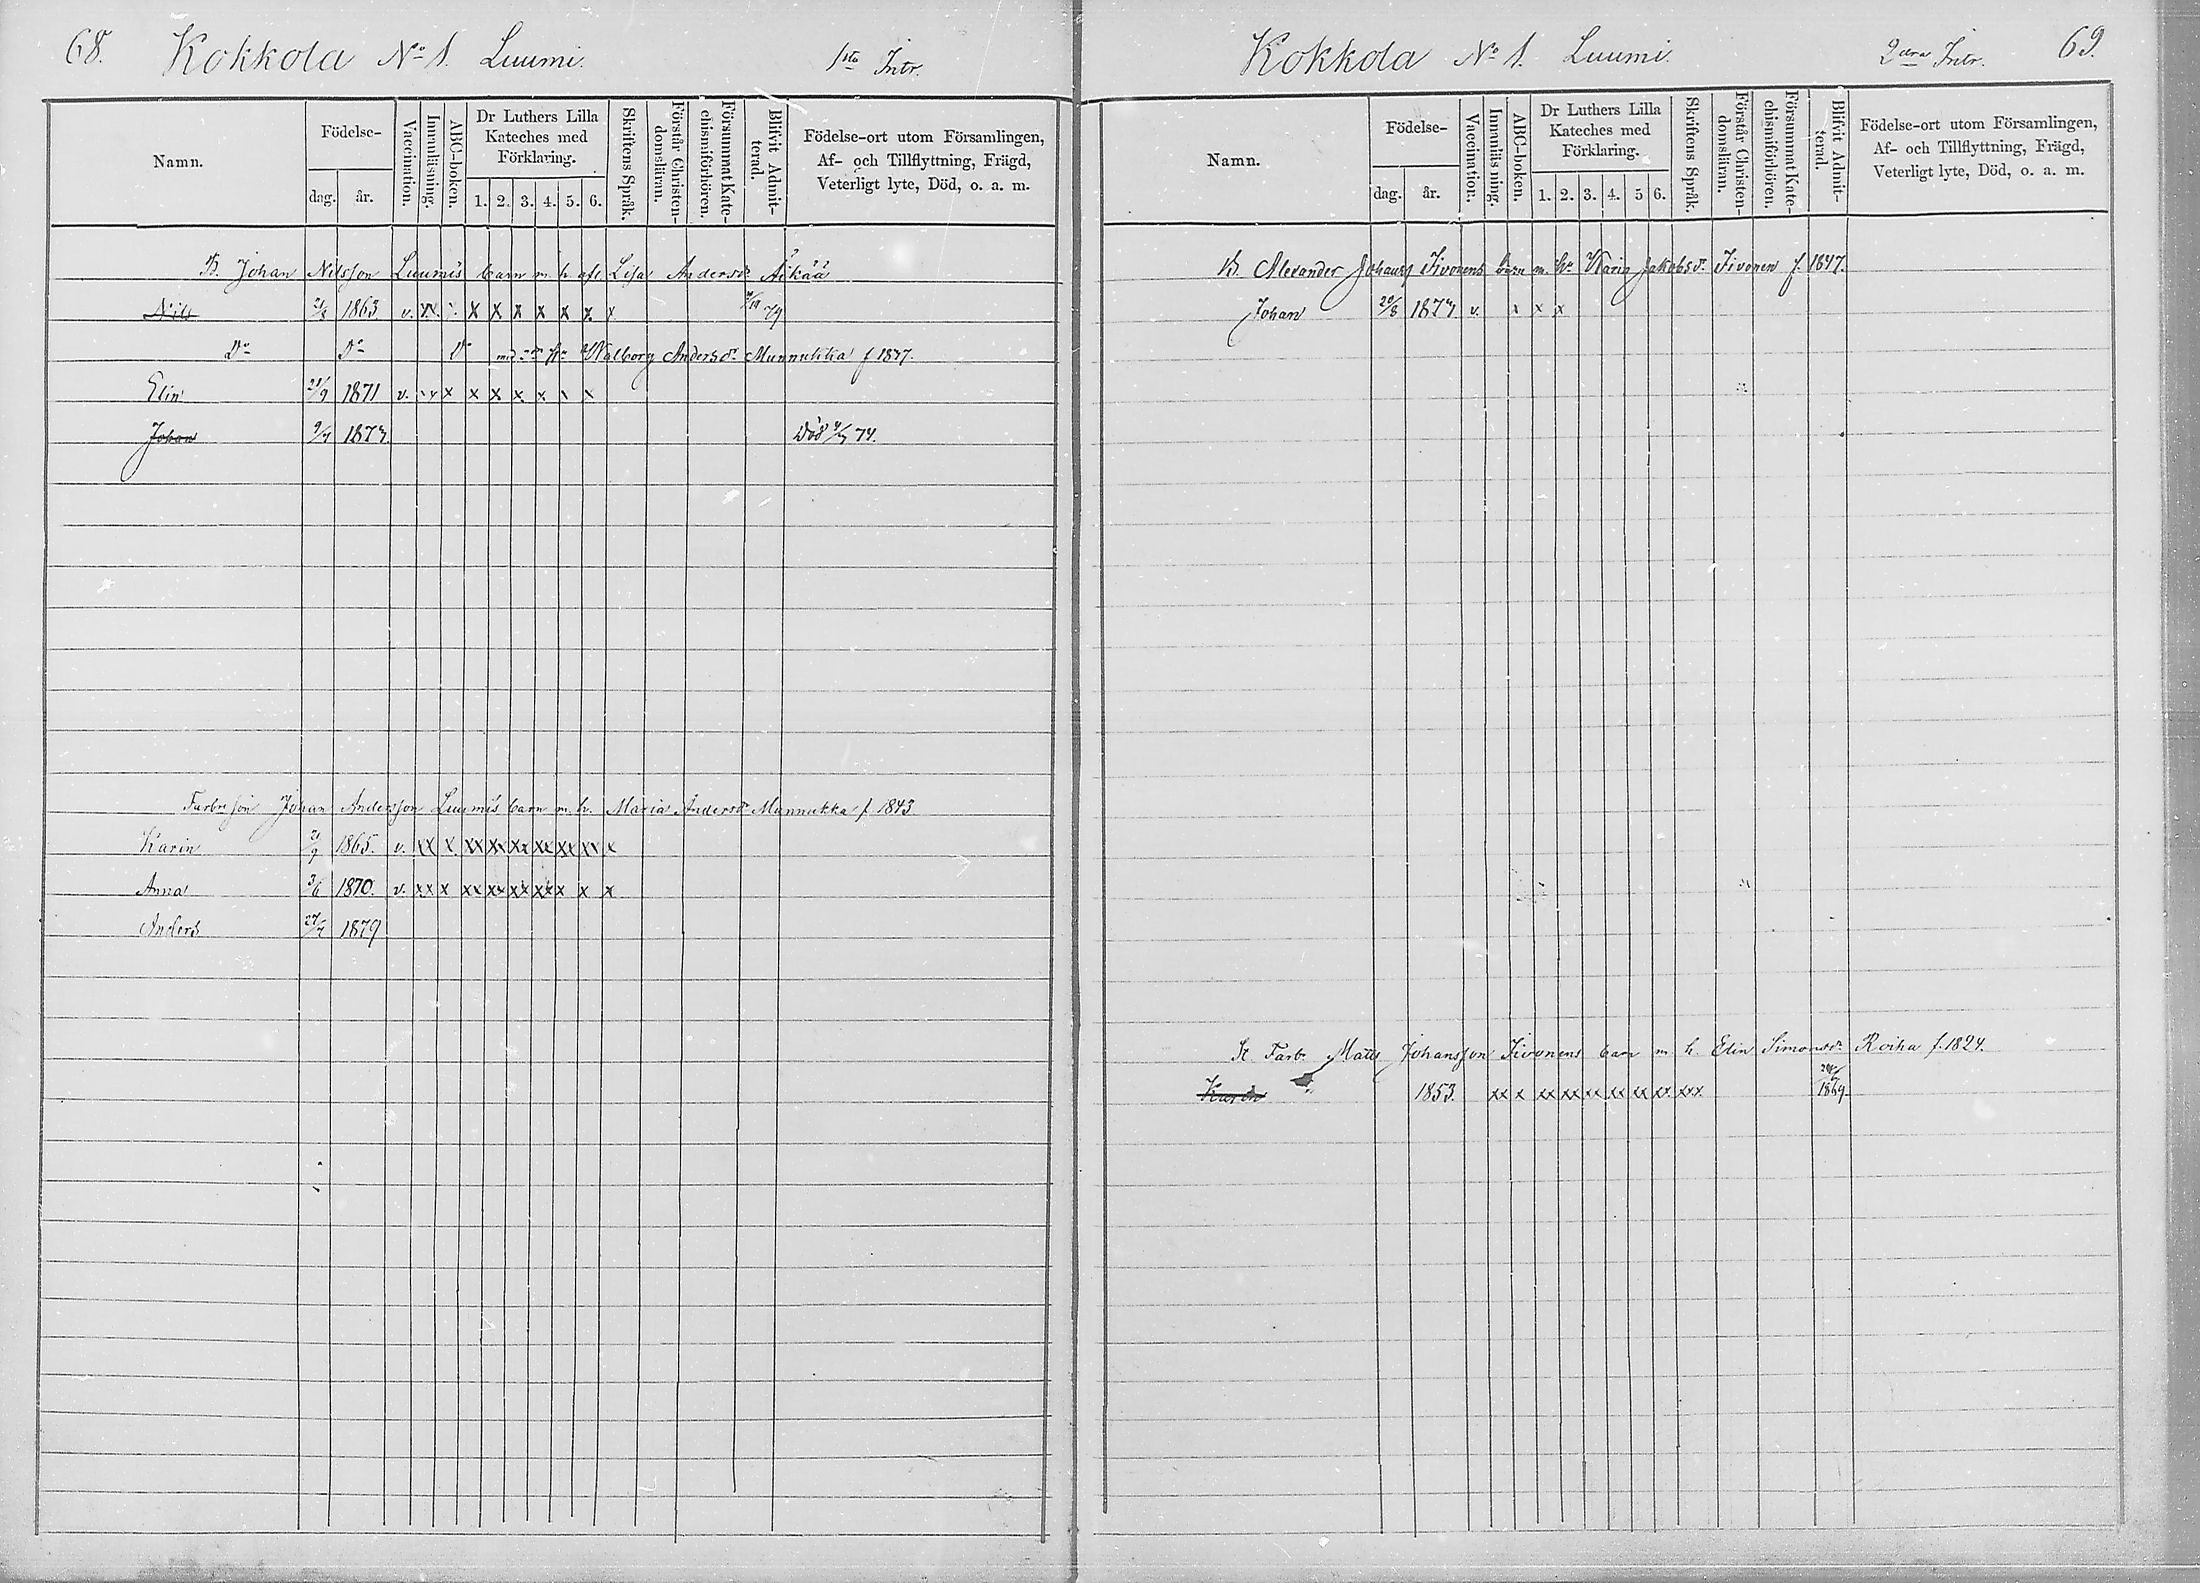 68. Kokkola No 1. Luumi. 1sta Intr.
Namn. Födelse- dag. år. Vaccination. Innanläsning. ABC-boken. Dr Luthers Lilla Kateches med Förklaring. 1. 2. 3. 4. 5. 6. Skriftens Språk. Förstår Christen-domsläran. Försummat Kate-chismiförhören. Blifvit Admit-terad. Födelse-ort utom Församlingen, Af- och Tillflyttning, Frägd, Veterligt lyte, Död, o. a. m.
B. Johan Nilsson Luumis barn m. h. afl. Lisa Andersdr Äikää
Nils 1863 v. xx x x x x x x x x 79
Do Do Do med 2dra hu Walborg Andersdr Munnukka f 1837.
Elin 21/9 1871 v. x x x x x x x x x
Johan 9/7 1874 Död 74.
Farbr. son Johan Andersson Luumis barn m. h. Maria Andersdr Munnukka f. 1843
Karin 21/9 1865. v. xx x xx xx xx xx xx xx x
Anna 3/6 1870. v. xx x xx xx xx xx x x x
Anders 27/7 1879
Kokkola No 1. Luumi. 2dra Intr. 69.
Namn. Födelse- dag. år. Vaccination. Innanläsning. ABC-boken. Dr Luthers Lilla Kateches med Förklaring. 1. 2. 3. 4. 5 6. Skriftens Språk. Förstår Christen-domsläran. Försummat Kate-chismiförhören. Blifvit Admit-terad. Födelse-ort utom Församlingen, Af- och Tillflyttning, Frägd, Veterligt lyte, Död, o. a. m.
B. Alexander Johanss Sivonens barn m. hu Karin Jakobsdr Sivonen f. 1847.
Johan 20/8 1874 v. x x x
Farbr Matts Johansson Sivonens barn m h. Elin Simonsdr Roiha f. 1824.
Karin 1853. xx x xx xx xx xx xx xx xxx 1869